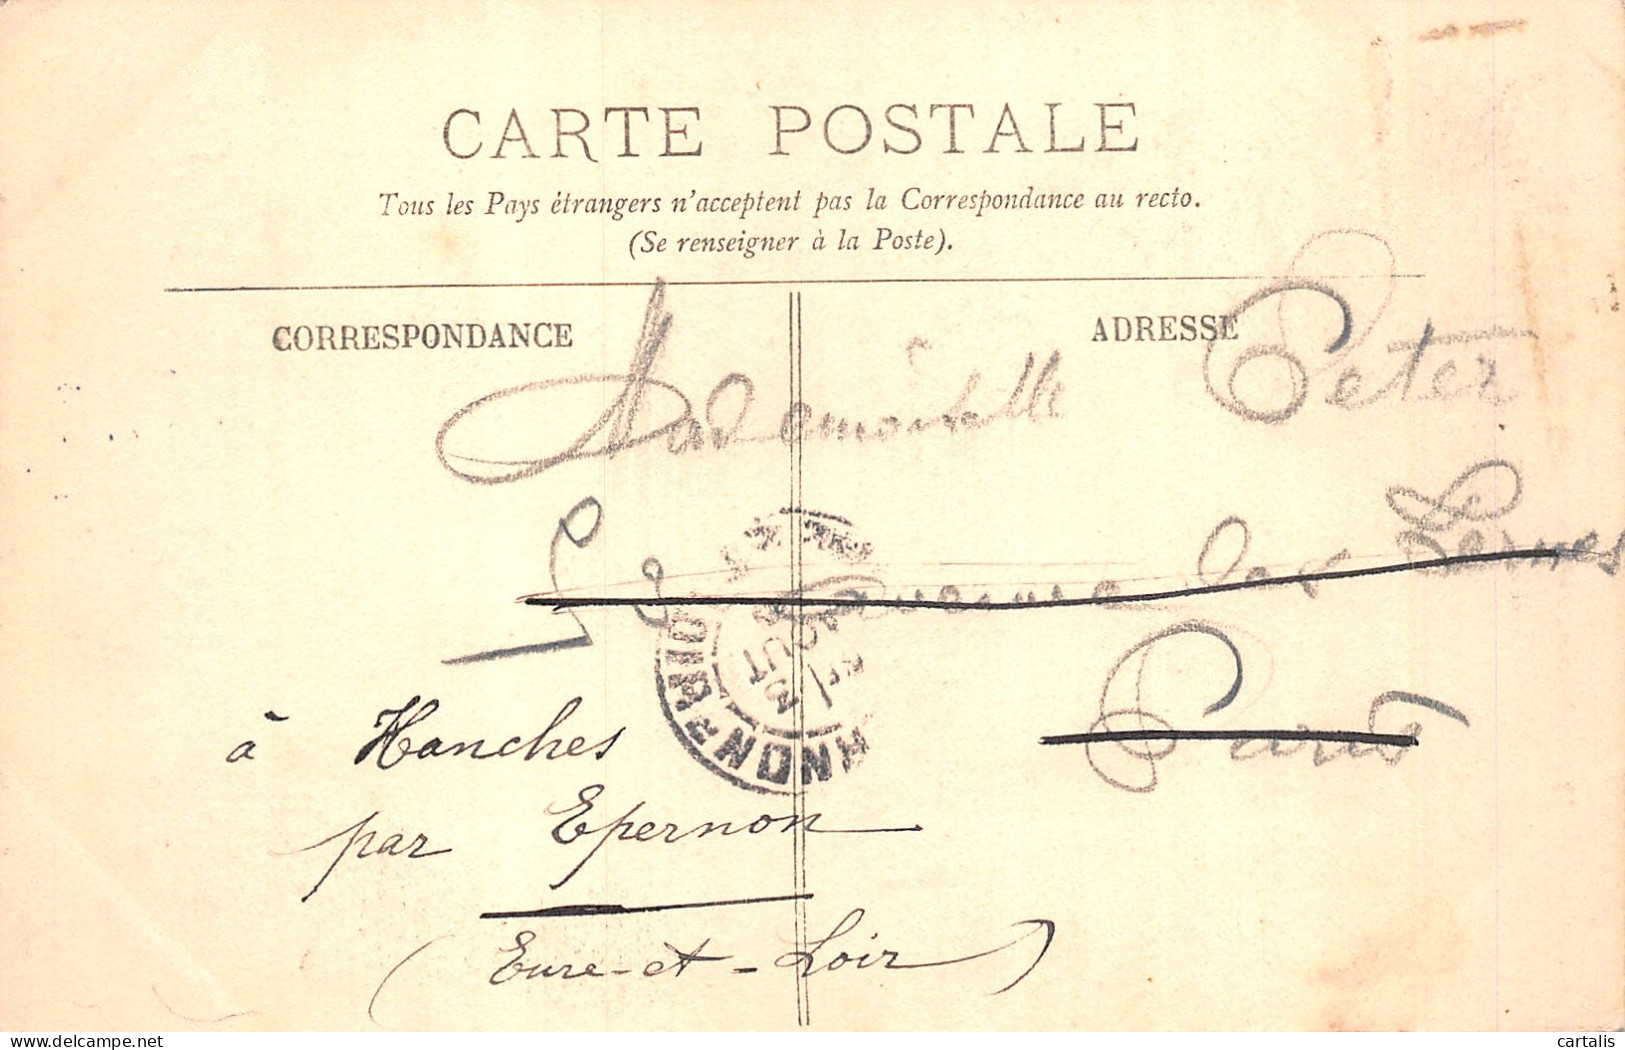 CARTE POSTALE
Tous les Pays étrangers n'acceptent pas la Correspondance au recto.
(Se renseigner à la Poste).
CORRESPONDANCE
ADRESSE
Mademoiselle Peter
avenue des Ternes
Paris
à Hanches
par Epernon
(Eure-et-Loir)
AOUT
delcampe.net
cartalis